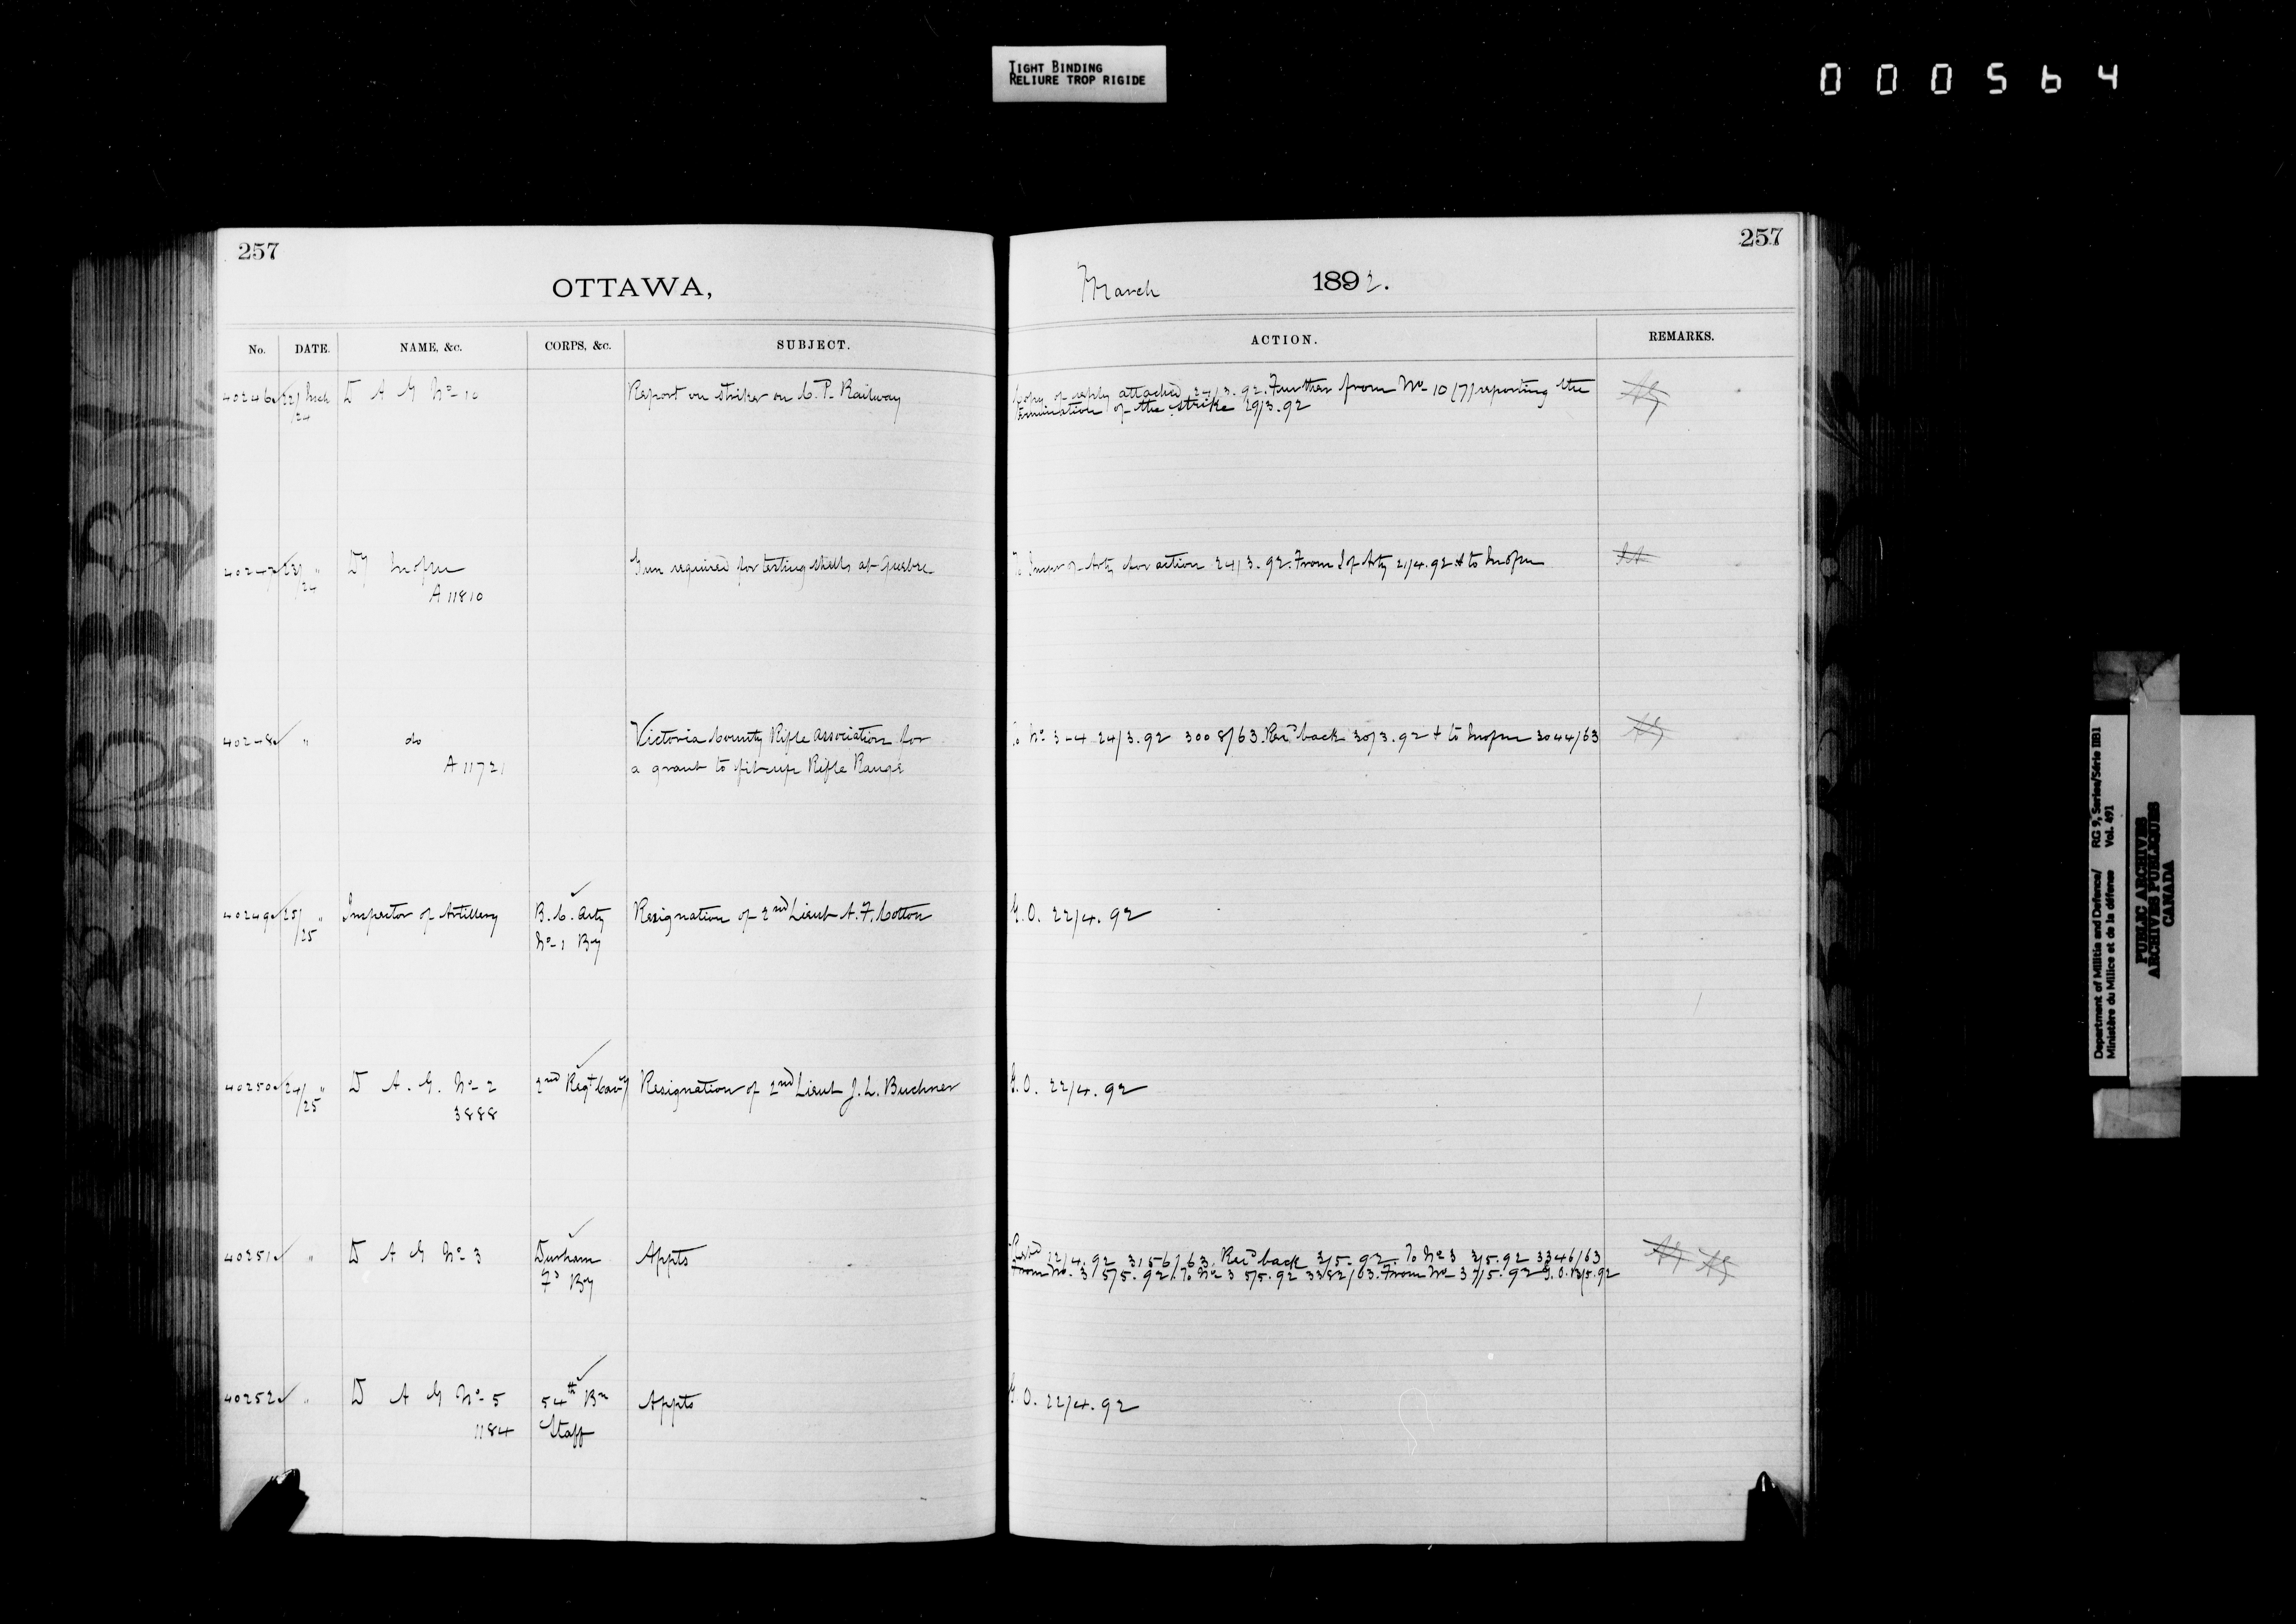 TIGHT BINDING
RELIURE TROP RIGIDE
000564
257
OTTAWA,
No. DATE. NAME, &c. CORPS, &c. SUBJECT.
40246 22/ Mch D A G No 10 Report on strikes on C. P. Railway
/24
40247 23/ " Dy
/24 A 11810 Gun required for testing shells at Quebec
40248 " do Victoria County Rifle Association for
A 11721 a grant to fit up Rifle Range
40249 25/ " Inspector of Artillery B. C. Arty Resignation of 2nd Lieut A. F. Cotton
/25 No 1 By
40250 24/ " D A. G. No 2 2nd Regt Cavy Resignation of 2nd Lieut J. L. Buchner
/25 3888
40251 " D A G No 3 Durham Appts
Fd By
40252 " D A G No 5 54th Bn Appts
1184 Staff
257
March 1892.
ACTION. REMARKS.
Copy of reply attached 24/3.92. Further from No 10 (7) reporting the
termination of the strike 29/3.92
To Inspr of Arty for action 24/3.92. From I of Arty 2/4.92 & to
To No 3-4 24/3.92 3008/63. Recd back 30/3.92 & to 3044/63
G.O. 22/4.92
G.O. 22/4.92
12/4.92 3156/63. Recd back 3/5.92. To No 3 3/5.92 3346/63
From No. 3 5/5.92. To No 3 5/5.92 3382/63. From No 3 7/5.92 G.O. 13/5.92
G.O. 22/4.92
Department of Militia and Defence/ RG 9, Series/Série IIB1
Ministère du Milice et de la défense Vol. 491
PUBLIC ARCHIVES
ARCHIVES PUBLIQUES
CANADA